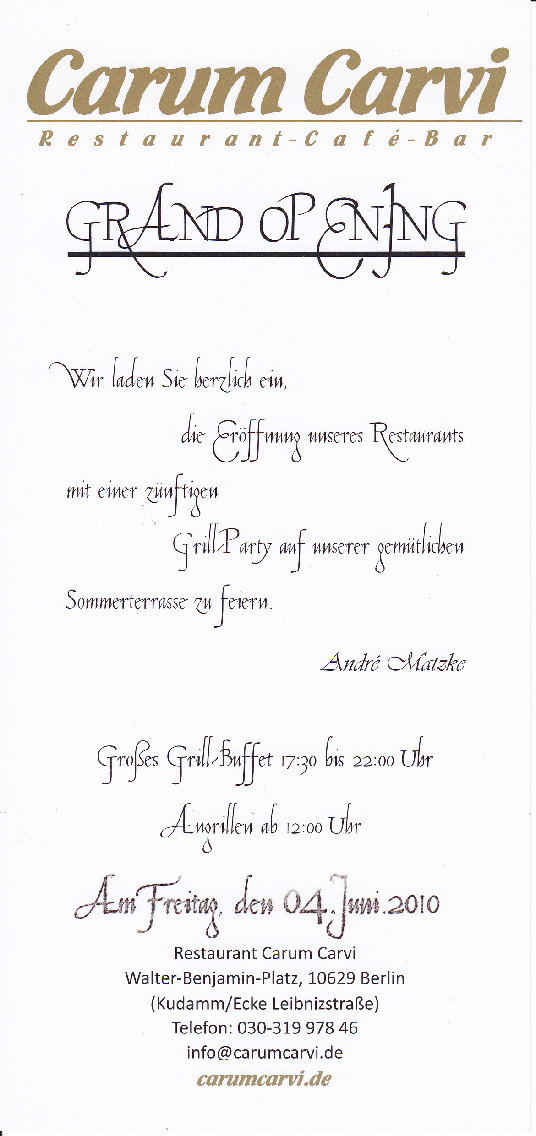 Carum Carvi
Restaurant-Café-Bar
GRAND OPENING
Wir laden Sie herzlich ein,
die Eröffnung unseres Restaurants
mit einer zünftigen
Grill-Party auf unserer gemütlichen
Sommerterrasse zu feiern.
André Matzke
Großes Grill-Buffet 17:30 bis 22:00 Uhr
Angrillen ab 12:00 Uhr
Am Freitag, den 04.Juni.2010
Restaurant Carum Carvi
Walter-Benjamin-Platz, 10629 Berlin
(Kudamm/Ecke Leibnizstraße)
Telefon: 030-319 978 46
info@carumcarvi.de
carumcarvi.de